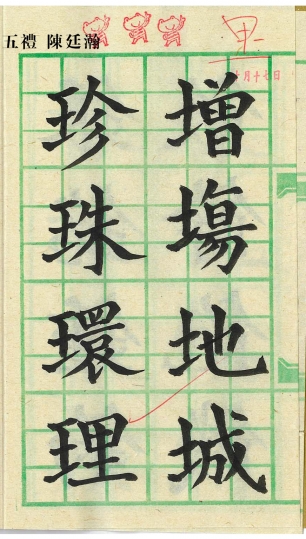 五禮 陳廷瀚
月十七日
增塲地城
珍珠環理